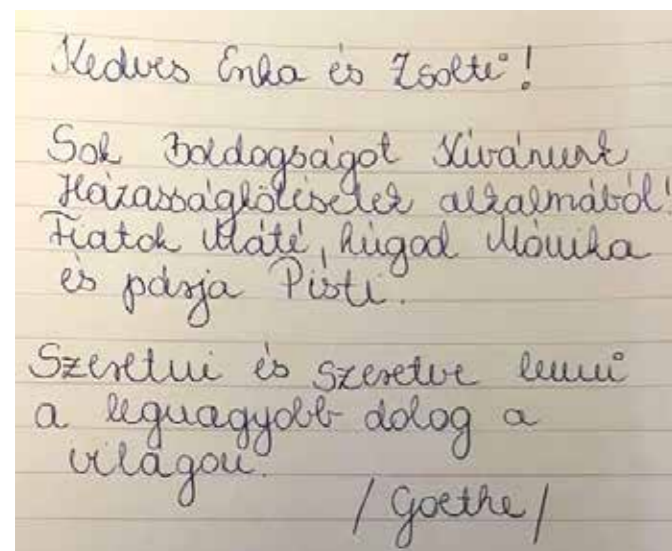 Kedves Enka és Zsolti!
Sok Boldogságot Kívánunk
Házasságkötésetek alkalmából!
Fiatok Máté, húgod Mónika
és párja Pisti.
Szeretni és szeretve lenni
a legnagyobb dolog a
világon.
/Goethe/